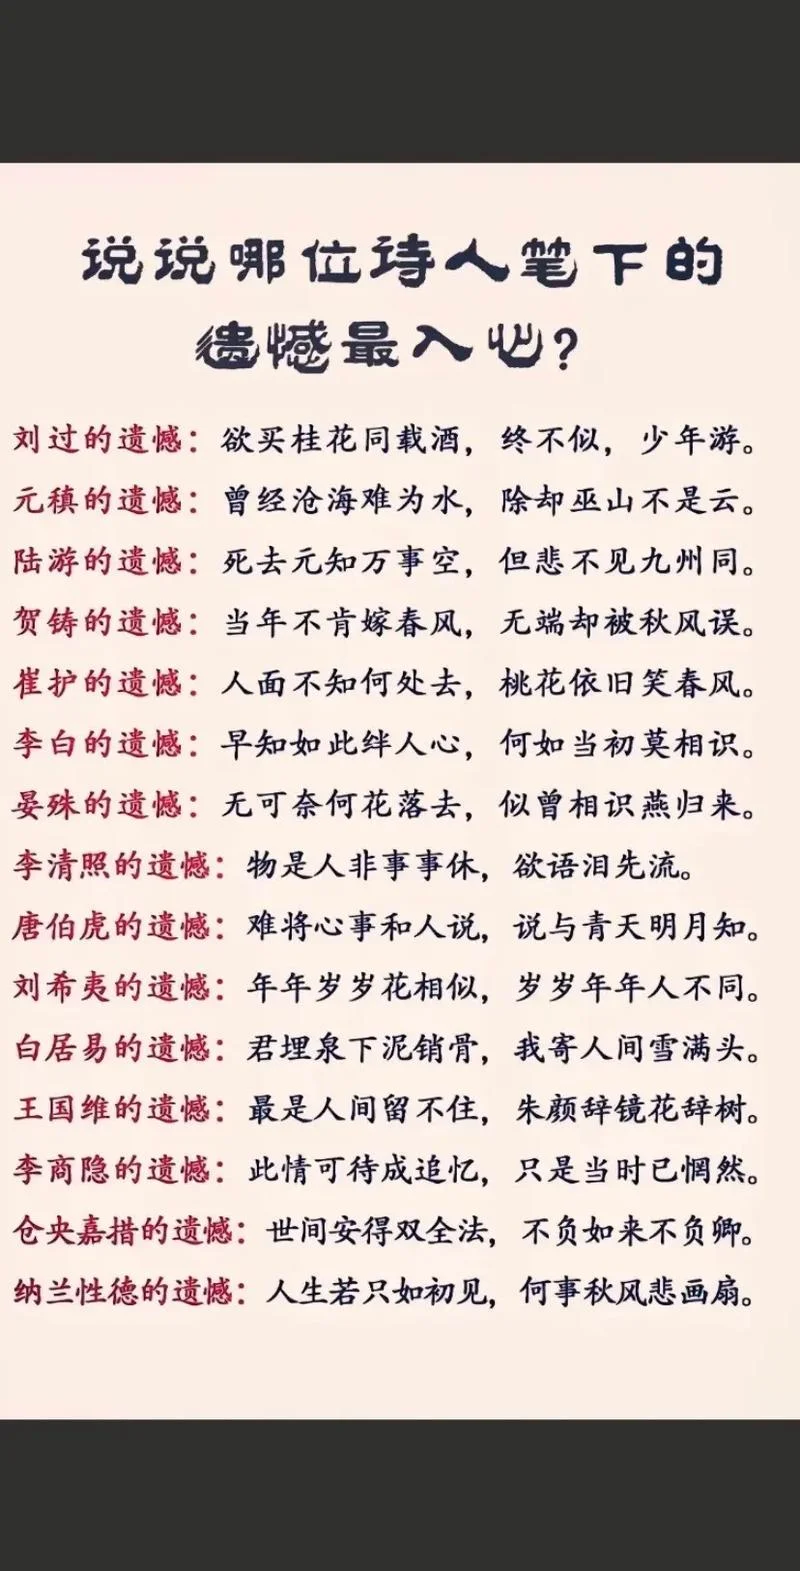 说说哪位诗人笔下的
遗憾最入心?
刘过的遗憾：欲买桂花同载酒，终不似，少年游。
元稹的遗憾：曾经沧海难为水，除却巫山不是云。
陆游的遗憾：死去元知万事空，但悲不见九州同。
贺铸的遗憾：当年不肯嫁春风，无端却被秋风误。
崔护的遗憾：人面不知何处去，桃花依旧笑春风。
李白的遗憾：早知如此绊人心，何如当初莫相识。
晏殊的遗憾：无可奈何花落去，似曾相识燕归来。
李清照的遗憾：物是人非事事休，欲语泪先流。
唐伯虎的遗憾：难将心事和人说，说与青天明月知。
刘希夷的遗憾：年年岁岁花相似，岁岁年年人不同。
白居易的遗憾：君埋泉下泥销骨，我寄人间雪满头。
王国维的遗憾：最是人间留不住，朱颜辞镜花辞树。
李商隐的遗憾：此情可待成追忆，只是当时已惘然。
仓央嘉措的遗憾：世间安得双全法，不负如来不负卿。
纳兰性德的遗憾：人生若只如初见，何事秋风悲画扇。